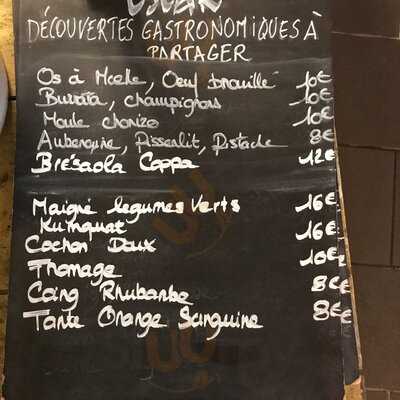 DÉCOUVERTES GASTRONOMIQUES À
PARTAGER
Os à Moelle, Oeuf brouillé 10€
Burrata, champignons 10€
Moule chorizo 10€
Aubergine, Pissenlit, Pistache 8€
Brésaola Coppa 12€
Maigre legumes Verts 16€
Kumquat
Cochon Doux 16€
Fromage 10€
Coing Rhubarbe 8€
Tarte Orange Sanguine 8€